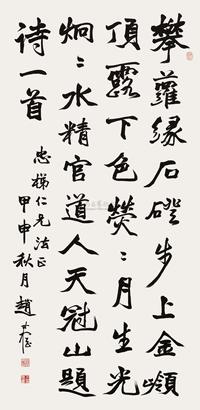 攀蘿緣石磴步上金嶺
頂露下色熒〻月生光
炯〻水精宫道人天冠山題
诗一首
忠梯仁兄法正
甲申秋月趙